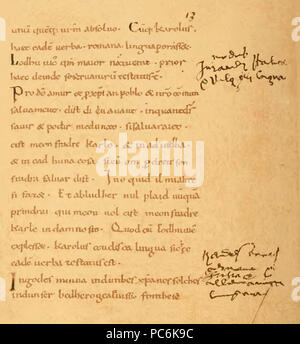 13
unū quēq; urm absoluo · Cūq; karolus
haec eadē uerba · romana lingua
Lodhuuic' qm maior natu erat · prior
haec deinde se seruaturū testatus ÷
Pro dō amur & p xpian poblo & nrō cōmun
saluament · dist di en auant · inquant dſ
sauir & podir medunat · sisaluarai eo ·
cist meon fradre karlo · & in ad iudha ·
& in cad huna cosa · sicū om p dreit son
fradra saluar dift · Ino quid il mialtre
si faz& · Et abludher nul plaid nūquā
prindrai qui meon uol cist meon fradre
karle in damno sit · Quod cū lodhuuic'
explesset · karolus teudisca lingua sic ec
eadē uerba testatus est ·
Ingodes minna indinthes xpanes folches
indunser bedhero gealtnissi · fonthese
PC6K9C